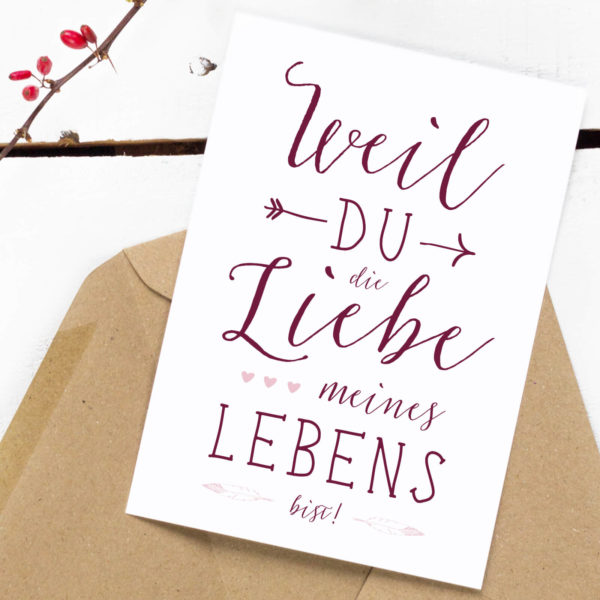 Weil
DU
die
Liebe
meines
LEBENS
bist!